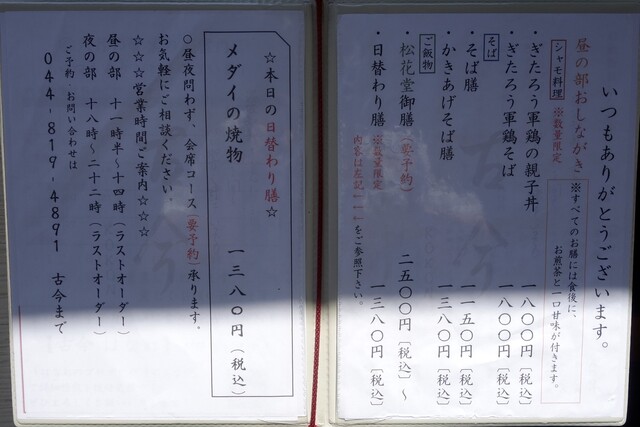 いつもありがとうございます。
昼の部おしながき
※すべてのお膳には食後に、
お煎茶と一口甘味が付きます。
シャモ料理 ※数量限定
・ぎたろう軍鶏の親子丼 一八〇〇円 〔税込〕
・ぎたろう軍鶏そば 一八〇〇円 〔税込〕
そば
・そば膳 一一五〇円 〔税込〕
・かきあげそば膳 一三八〇円 〔税込〕
ご飯物
・松花堂御膳 (要予約) 二五〇〇円 〔税込〕〜
・日替わり膳 ※数量限定 一三八〇円 〔税込〕
内容は左記「ーー」をご参照下さい。
☆本日の日替わり膳☆
メダイの焼物
一三八〇円 (税込)
○昼夜問わず、会席コース(要予約)承ります。
お気軽にご相談ください。
☆☆☆営業時間ご案内☆☆☆
昼の部 十一時半〜十四時(ラストオーダー)
夜の部 十八時〜二十二時(ラストオーダー)
ご予約・お問い合わせは
044-819-4891 古今まで